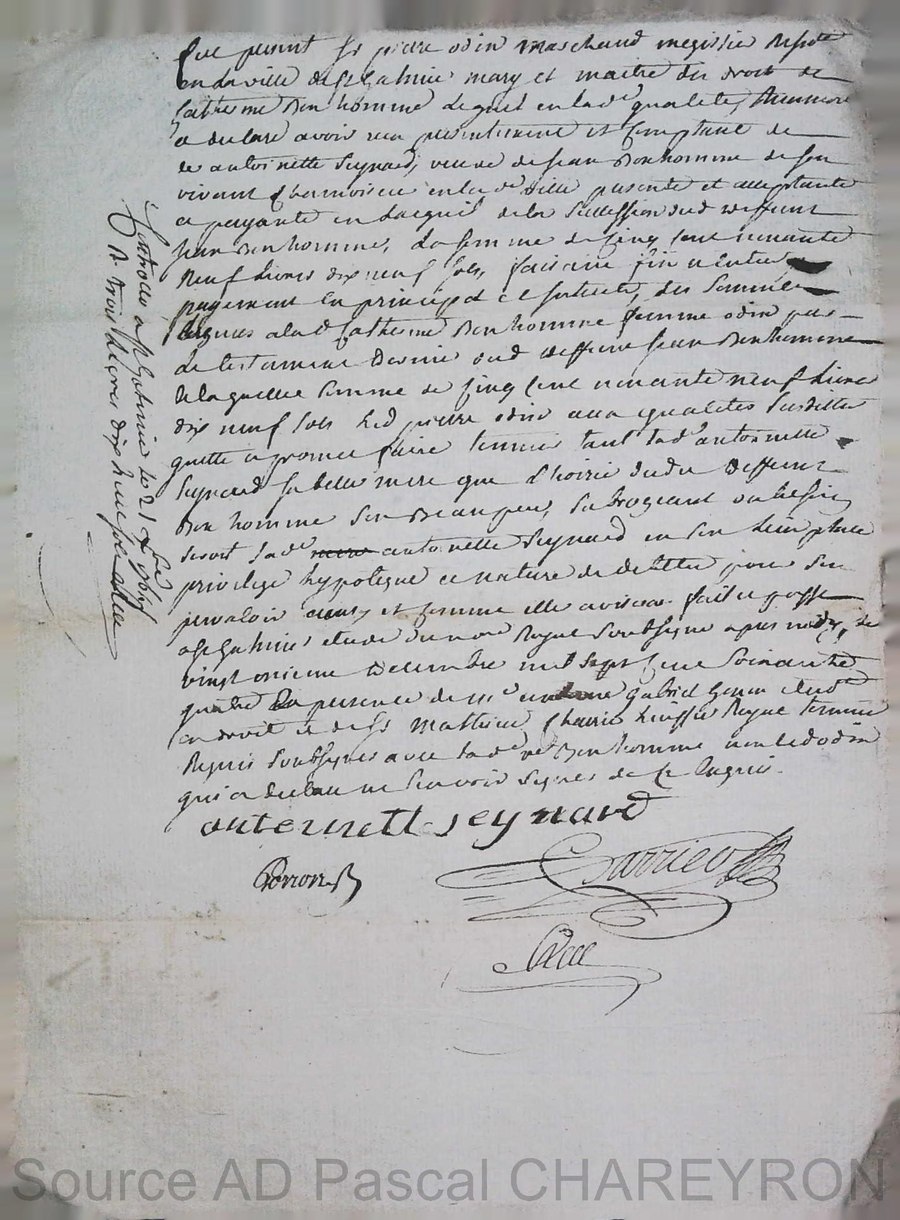 fut présent Sr pierre odin marchand megissier
en la ville de St Galmier mary et maitre des droits de
Catherine Bonhomme lequel en lad. qualité,
a declaré avoir reçu presentement et comptant de
de antoinette seynard, veuve de jean Bonhomme de son
vivant chamoiseur en lad. ville presente et acceptante
et payante en l'acquit de la succession dud deffunt
jean Bonhomme, la somme de Cinq Cent nonante
neuf livres dix neuf sols, faisant fin et entier
payement en principal et interets, des sommes
leguées a lad Catherine Bonhomme femme odin par
le testament dernier dud deffunt jean Bonhomme
de laquelle somme de Cinq Cent nonante neuf livres
dix neuf sols led pierre odin aux qualités susdittes
quitte et promet faire tenir tant lad. antoinette
seynard sa belle mere que l'hoirie dudit deffunt
Bonhomme son Beaupere, subrogeant au besoin
seroit lad. antoinette seynard en son lieu place
privilege hypoteque et nature de debtes pour s'en
prevaloir ainsy et comme elle avisera. fait et passé
a St Galmier etude du no.re Royal soussigné apres midy, le
vingt onzieme decembre mil sept Cent soixante
quatre en presence de Me gabriel
en droit et de Sr Mathieu huissier Royal temoins
Requis soussignés avec lad. ve Bonhomme non led odin
qui a declaré ne sçavoir signer de ce Requis.
antennette seynard
Ponson
Barrieu
Controllé a St Galmier le 21 Xbre 1764
R trois livres dix huit sols
Source AD Pascal CHAREYRON